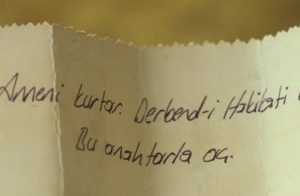 Ameni kurtar. Derbend-i Hakikati
Bu anahtarla aç.